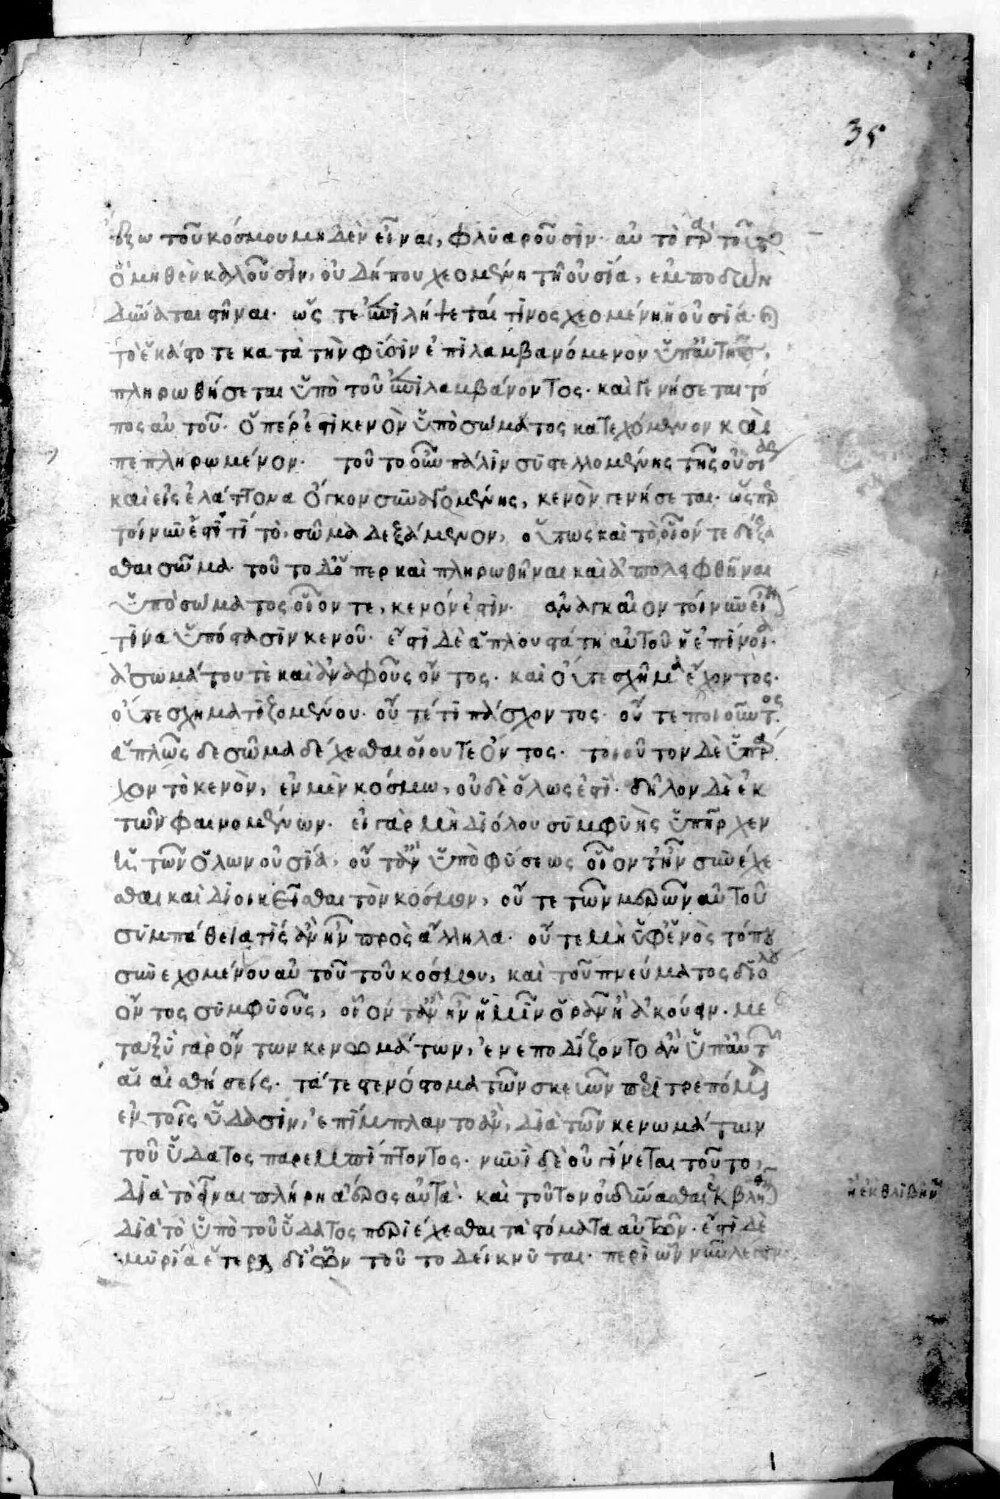 35
ἔξω τοῦ κόσμου μηδὲν εἶναι, φλυαροῦσιν· αὐτὸ γὰρ τοῦτο
ὃ μηθὲν καλοῦσιν, οὐ δήπου χεομένη τῆ οὐσία, ἐμποδὼν
δύναται στῆναι· ὥστε ἐπιλήψεταί τινος χεομένη ἡ οὐσία·
τὸ ἑκάστοτε κατὰ τὴν φύσιν ἐπιλαμβανόμενον ὑπ' αὐτῆς,
πληρωθήσεται ὑπὸ τοῦ ἐπιλαμβάνοντος· καὶ γενήσεται τό
πος αὐτοῦ· ὅπέρ ἐστι κενὸν ὑπὸ σώματος κατεχόμενον καὶ
πεπληρωμένον· τοῦτο οὖν πάλιν συστελλομένης τῆς οὐσίας
καὶ εἰς ἐλάττονα ὄγκον συναγομένης, κενὸν γενήσεται· ὥσπερ
τοίνυν ἐστί τι τὸ σῶμα δεξάμενον, οὕτως καὶ τὸ οἷόν τε δέξα
σθαι σῶμα· τοῦτο δ' ὅπερ καὶ πληρωθῆναι καὶ ἀπολειφθῆναι
ὑπὸ σώματος οἷον τε, κενόν ἐστιν· ἀναγκαῖον τοίνυν εἶναι
τινα ὑπόστασιν κενοῦ· ἔστι δὲ ἁπλουστάτη αὐτοῦ ἡ ἐπίνοια·
ἀσωμάτου τὲ καὶ ἀναφοῦς ὄντος· καὶ οὔτε σχῆμα ἔχοντος·
οὔτε σχηματιζομένου· οὔτέ τι πάσχοντος· οὔτε ποιοῦντος
ἁπλῶς δὲ σῶμα δέχεσθαι οἵου τε ὄντος· τοιοῦτον δὲ ὑπάρ
χον τὸ κενὸν, ἐν μὲν κόσμω, οὐδὲ ὅλως ἐστί· δῆλον δὲ ἐκ
τῶν φαινομένων· εἰ γὰρ μὴ διόλου συμφυὴς ὑπῆρχεν
ἡ τῶν ὅλων οὐσία, οὔτ' ἂν ὑπὸ φύσεως οἷον τ' ἦν συνέχε
σθαι καὶ διοικεῖσθαι τὸν κόσμον, οὔτε τῶν μερῶν αὐτοῦ
συμπάθειά τις ἂν ἦν πρὸς ἄλληλα· οὔτε μὴ ὑφ' ἑνὸς τόνου
συνεχομένου αὐτοῦ τοῦ κόσμου, καὶ τοῦ πνεύματος διόλου
ὄντος συμφυοῦς, οἷόν τ' ἂν ἦν ἡμῖν ὁρᾶν ἢ ἀκούειν· με
ταξὺ γὰρ ὄντων κενωμάτων, ἐνεποδίζοντο ἂν ὑπ' αὐτῶν
αἱ αἰσθήσεις· τά τε στενόστομα τῶν σκευῶν περιτρεπόμενα
ἐν τοῖς ὕδασιν, ἐπίμπλαντο ἂν, διὰ τῶν κενωμάτων
τοῦ ὕδατος παρεμπίπτοντος· νυνὶ δὲ οὐ γίνεται τοῦτο,
διὰ τὸ εἶναι πλήρη ἀέρος αὐτά· καὶ τοῦτον οὐ δύνασθαι ἐκβληθῆναι
ἢ ἐκθλιβῆναι
διὰ τὸ ὑπὸ τοῦ ὕδατος περιέχεσθαι τὰ στόματα αὐτῶν· ἔστι δὲ
μυρία ἕτερα δι' ὧν τοῦτο δείκνυται· περὶ ὧν νῦν λέγειν